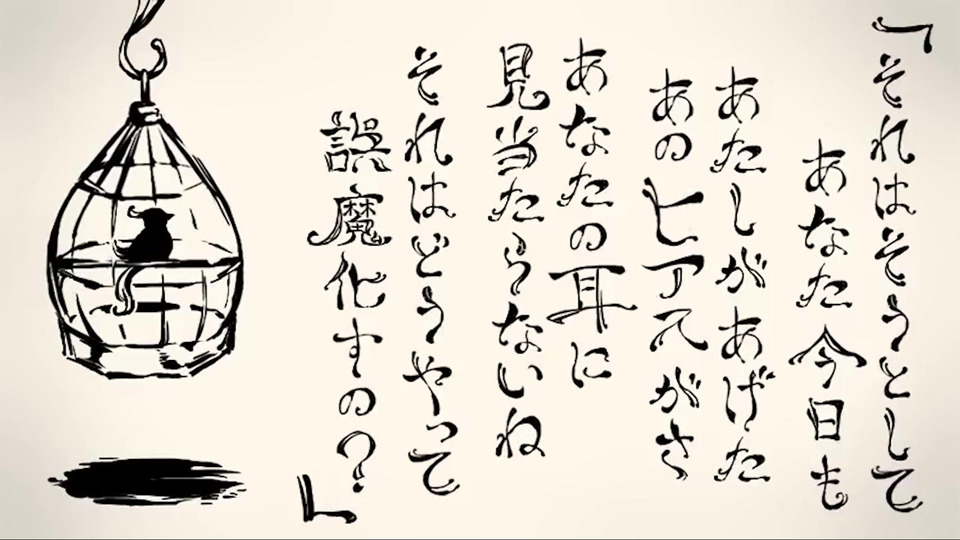 「それはそうとして
あなた今日も
あたしがあげた
あのピアスがさ
あなたの耳に
見当たらないね
それはどうやって
誤魔化すの？」